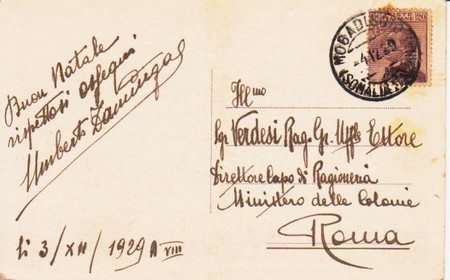 Buon Natale
rispettosi ossequi
Umberto
li 3/XII/1929 A VIII
MOGADISCIO
4.12.29
(SOMALIA
Ill mo
Sg Verdesi Rag. Gr. Uff. Ettore
Direttore Capo di Ragioneria
Ministero delle Colonie
Roma